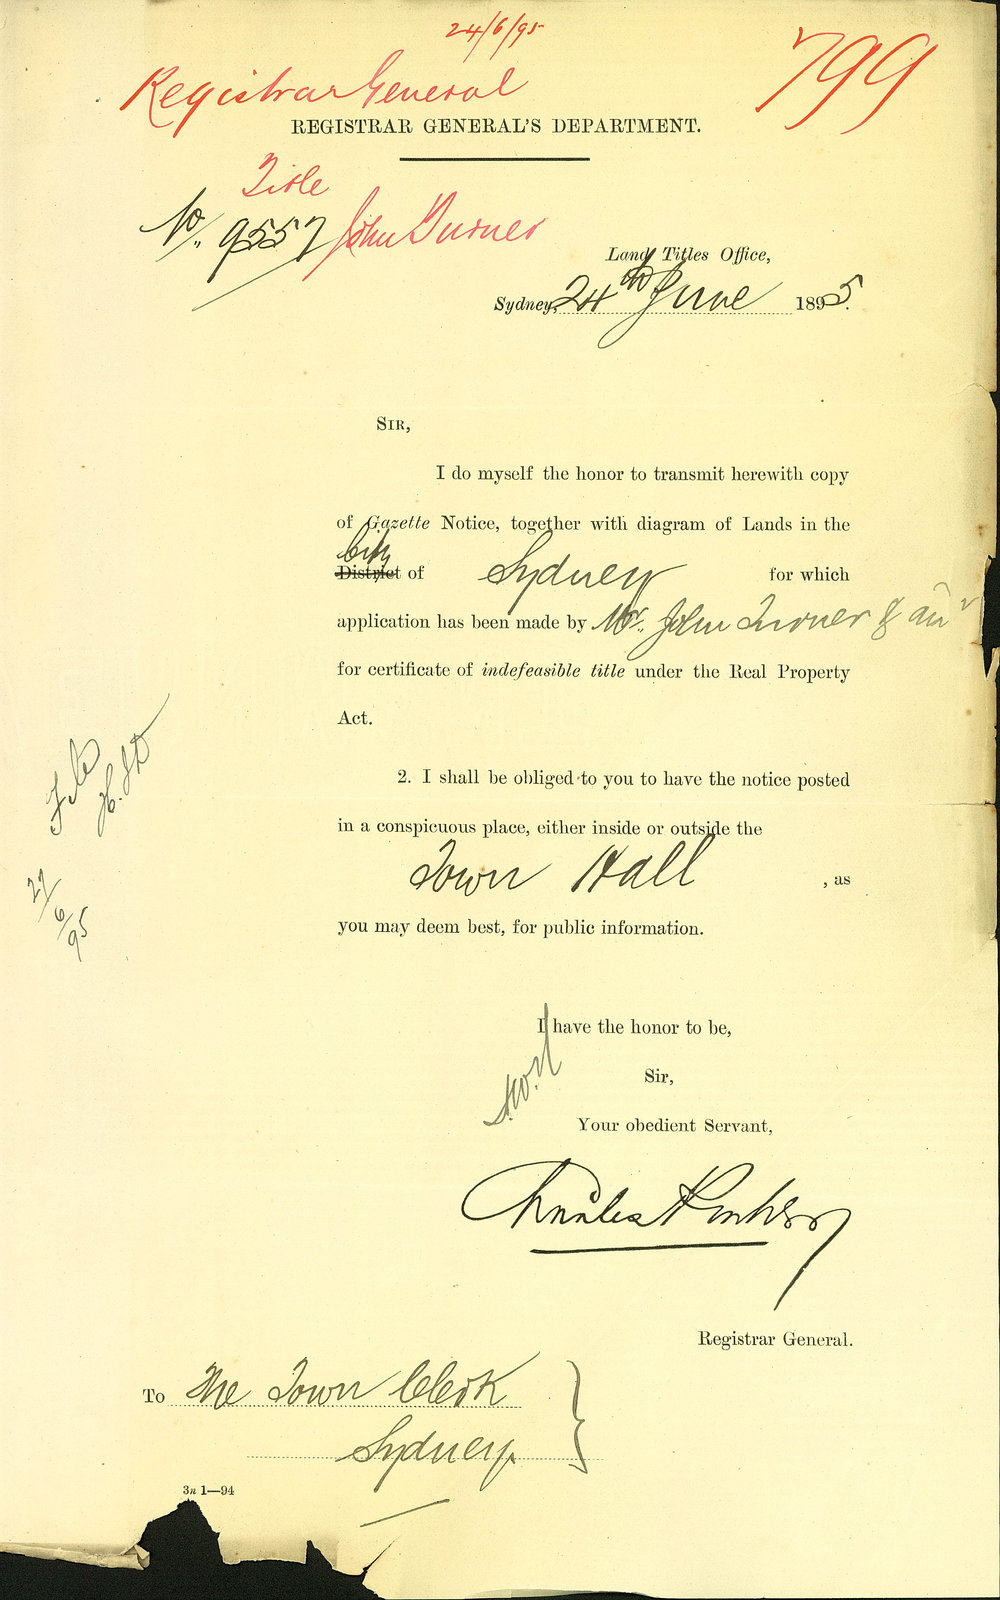 24/6/95
799
Registrar General
REGISTRAR GENERAL'S DEPARTMENT.
Title
No. 9557 John Turner
Land Titles Office,
Sydney, 24th June 1895.
SIR,
I do myself the honor to transmit herewith copy
of Gazette Notice, together with diagram of Lands in the
City
District of Sydney for which
application has been made by Mr. John Turner & anr
for certificate of indefeasible title under the Real Property
Act.
2. I shall be obliged to you to have the notice posted
in a conspicuous place, either inside or outside the
Town Hall, as
you may deem best, for public information.
File
27/6/95
I have the honor to be,
Sir,
Your obedient Servant,
Charles
Registrar General.
To The Town Clerk
Sydney.
3n 1—94